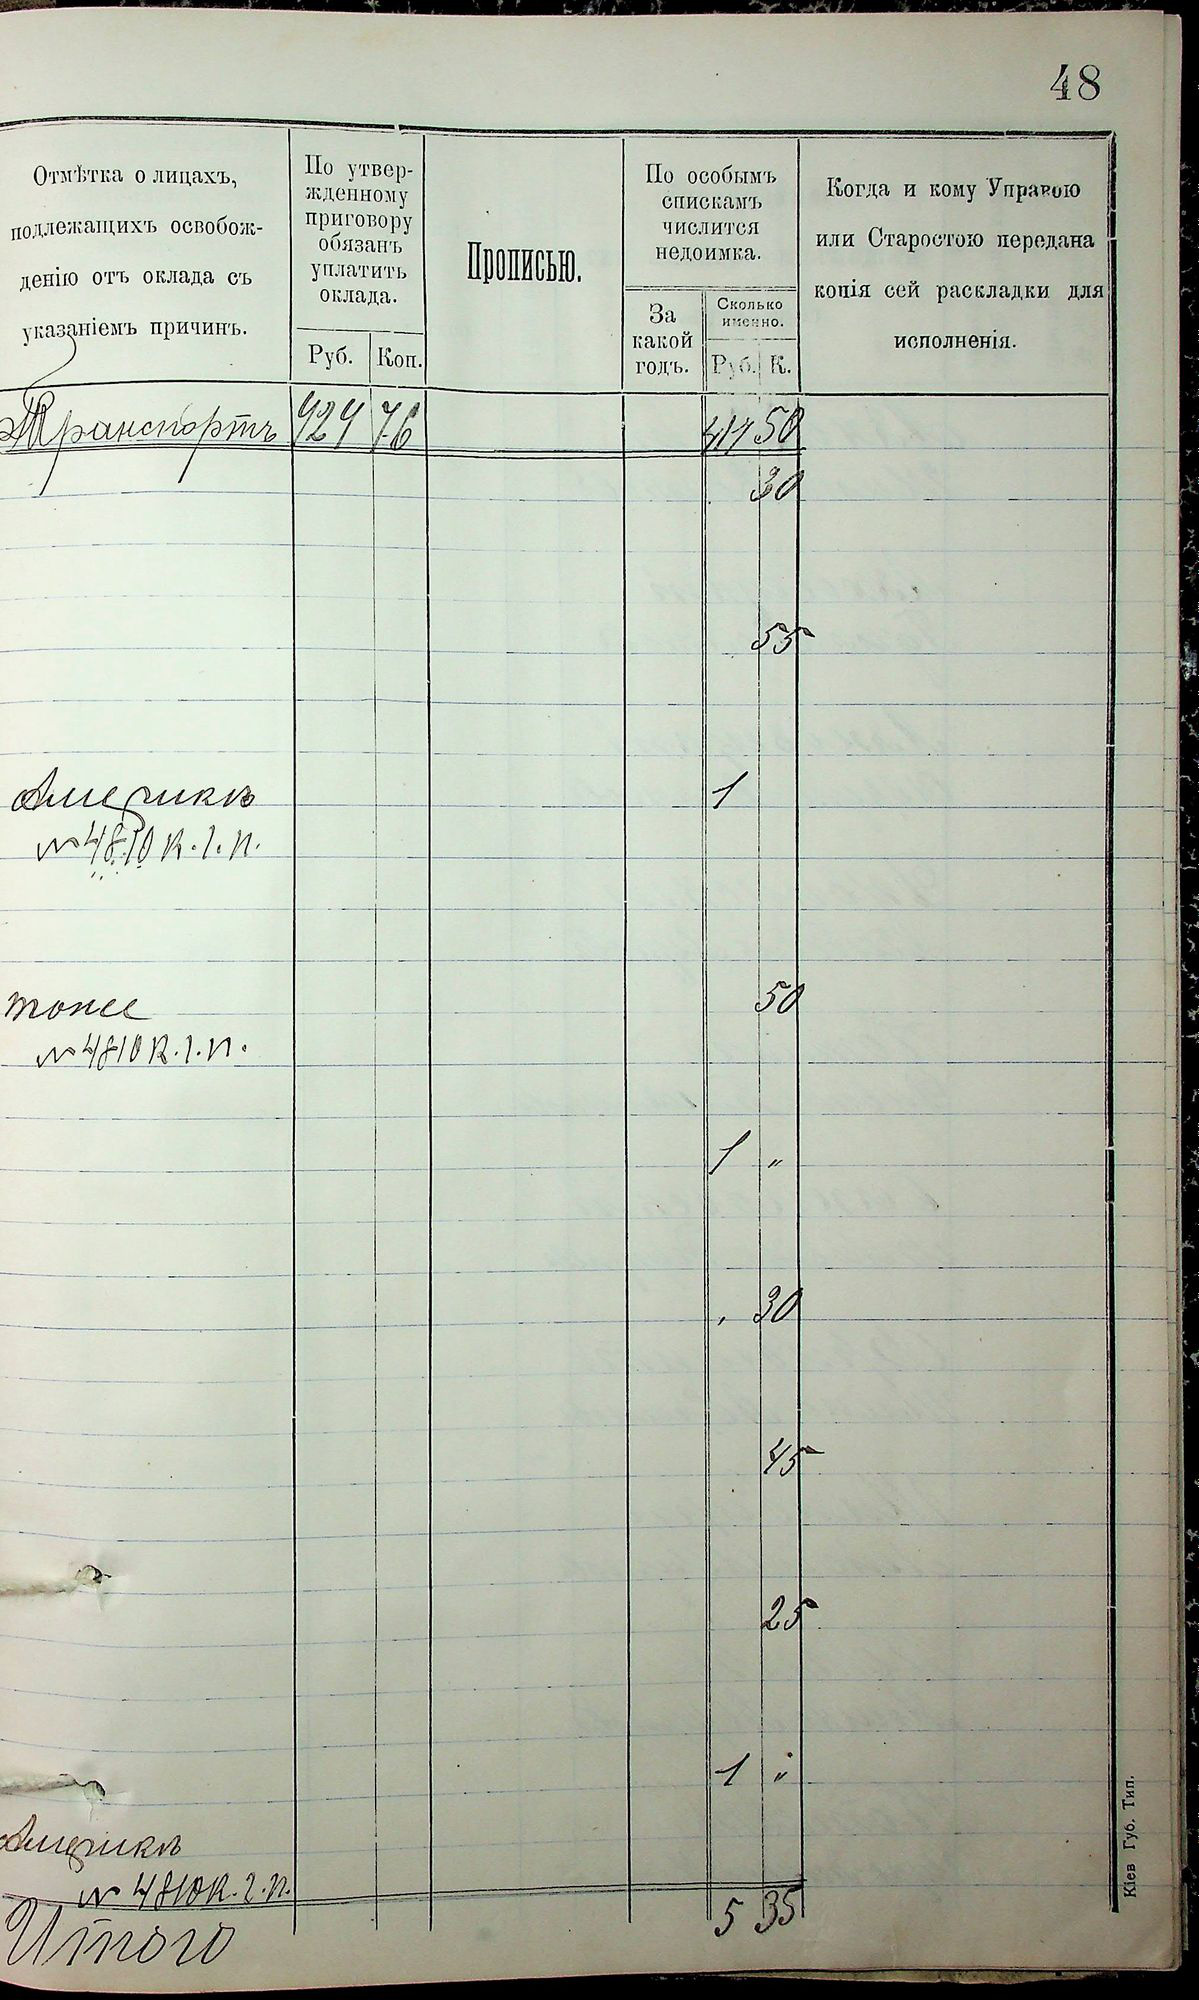 48
Отмѣтка о лицахъ,
подлежащихъ освобож-
денію отъ оклада съ
указаніемъ причинъ.
По утвер-
жденному
приговору
обязанъ
уплатить
оклада.
Руб. Коп.
Прописью.
По особымъ
спискамъ
числится
недоимка.
За
какой
годъ.
Сколько
именно.
Руб. К.
Когда и кому Управою
или Старостою передана
копія сей раскладки для
исполненія.
Транспортъ 76 50
30
55
Америкѣ 1
№ 4810 К.
тоже 50
№ 4810 К.
1 "
30
45
25
1 "
Америкѣ
№ 4810 К.
Итого 5 35
Кіев Губ. Тип.